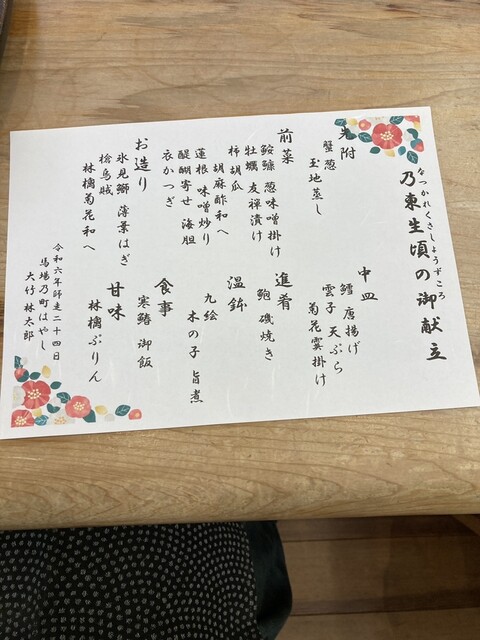 なつかれくさしょうずころ
乃東生頃の御献立
先附
蟹 葱
玉地蒸し
前菜
鮟鱇 葱味噌掛け
牡蠣 友禅漬け
柿 胡瓜
胡麻酢和へ
蓮根 味噌炒り
醍醐寄せ 海胆
衣かつぎ
お造り
氷見鰤 薄葉はぎ
槍烏賊
林檎菊花和へ
中皿
鱈 唐揚げ
雲子 天ぷら
菊花霙掛け
進肴
鮑 磯焼き
温鉢
九絵
木の子 旨煮
食事
寒鰆 御飯
甘味
林檎ぷりん
令和六年師走二十四日
馬場乃町はやし
大竹 林太郎